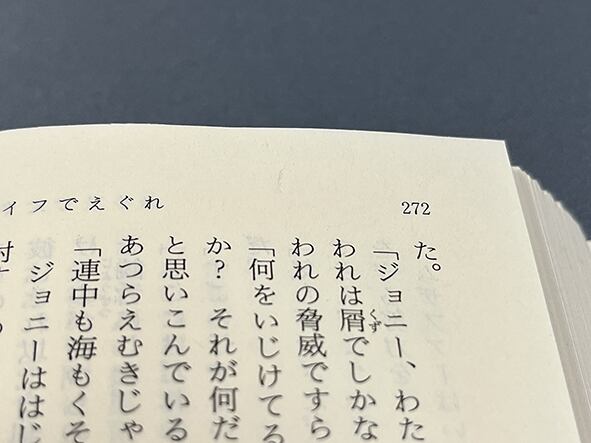 272
イフでえぐれ
た。
「ジョニー、わた
われは屑でしかな
くず
われの脅威ですら
「何をいじけてる
か？　それが何だ
と思いこんでいる
あつらえむきじゃ
「連中も海もくそ
ジョニーははじ
対するの